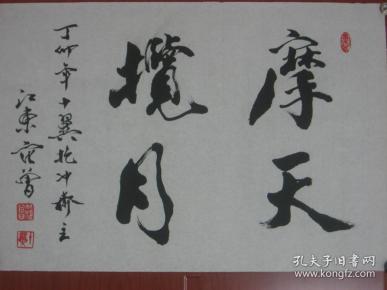 摩天
攬月
丁卯年十翼抱冲齋主
江東范曾
孔夫子旧书网
www.kongfz.com